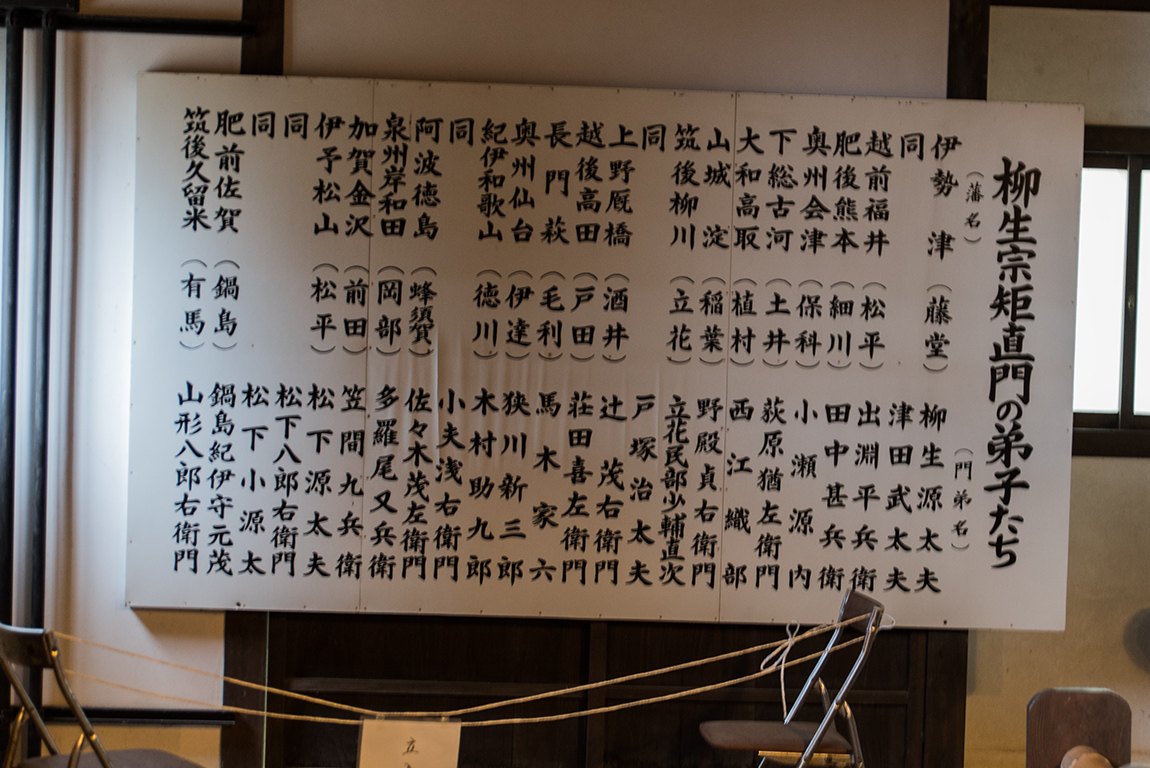 柳生宗矩直門の弟子たち
(藩名) (門弟名)
伊勢 津 (藤堂) 柳生源太夫
同 津田武太夫
越前福井 (松平) 出淵平兵衛
肥後熊本 (細川) 田中甚兵衛
奥州会津 (保科) 小瀬源内
下総古河 (土井) 荻原猶左衛門
大和高取 (植村) 西江織部
山城 淀 (稲葉) 野殿貞右衛門
筑後柳川 (立花) 立花民部少輔直次
同 戸塚治太夫
上野厩橋 (酒井) 辻 茂右衛門
越後高田 (戸田) 荘田喜左衛門
長門 萩 (毛利) 馬木家六
奥州仙台 (伊達) 狭川新三郎
紀伊和歌山 (徳川) 木村助九郎
同 小夫浅右衛門
阿波徳島 (蜂須賀) 佐々木茂左衛門
泉州岸和田 (岡部) 多羅尾又兵衛
加賀金沢 (前田) 笠間九兵衛
伊予松山 (松平) 松下源太夫
同 松下八郎右衛門
同 松下小源太
肥前佐賀 (鍋島) 鍋島紀伊守元茂
筑後久留米 (有馬) 山形八郎右衛門
立